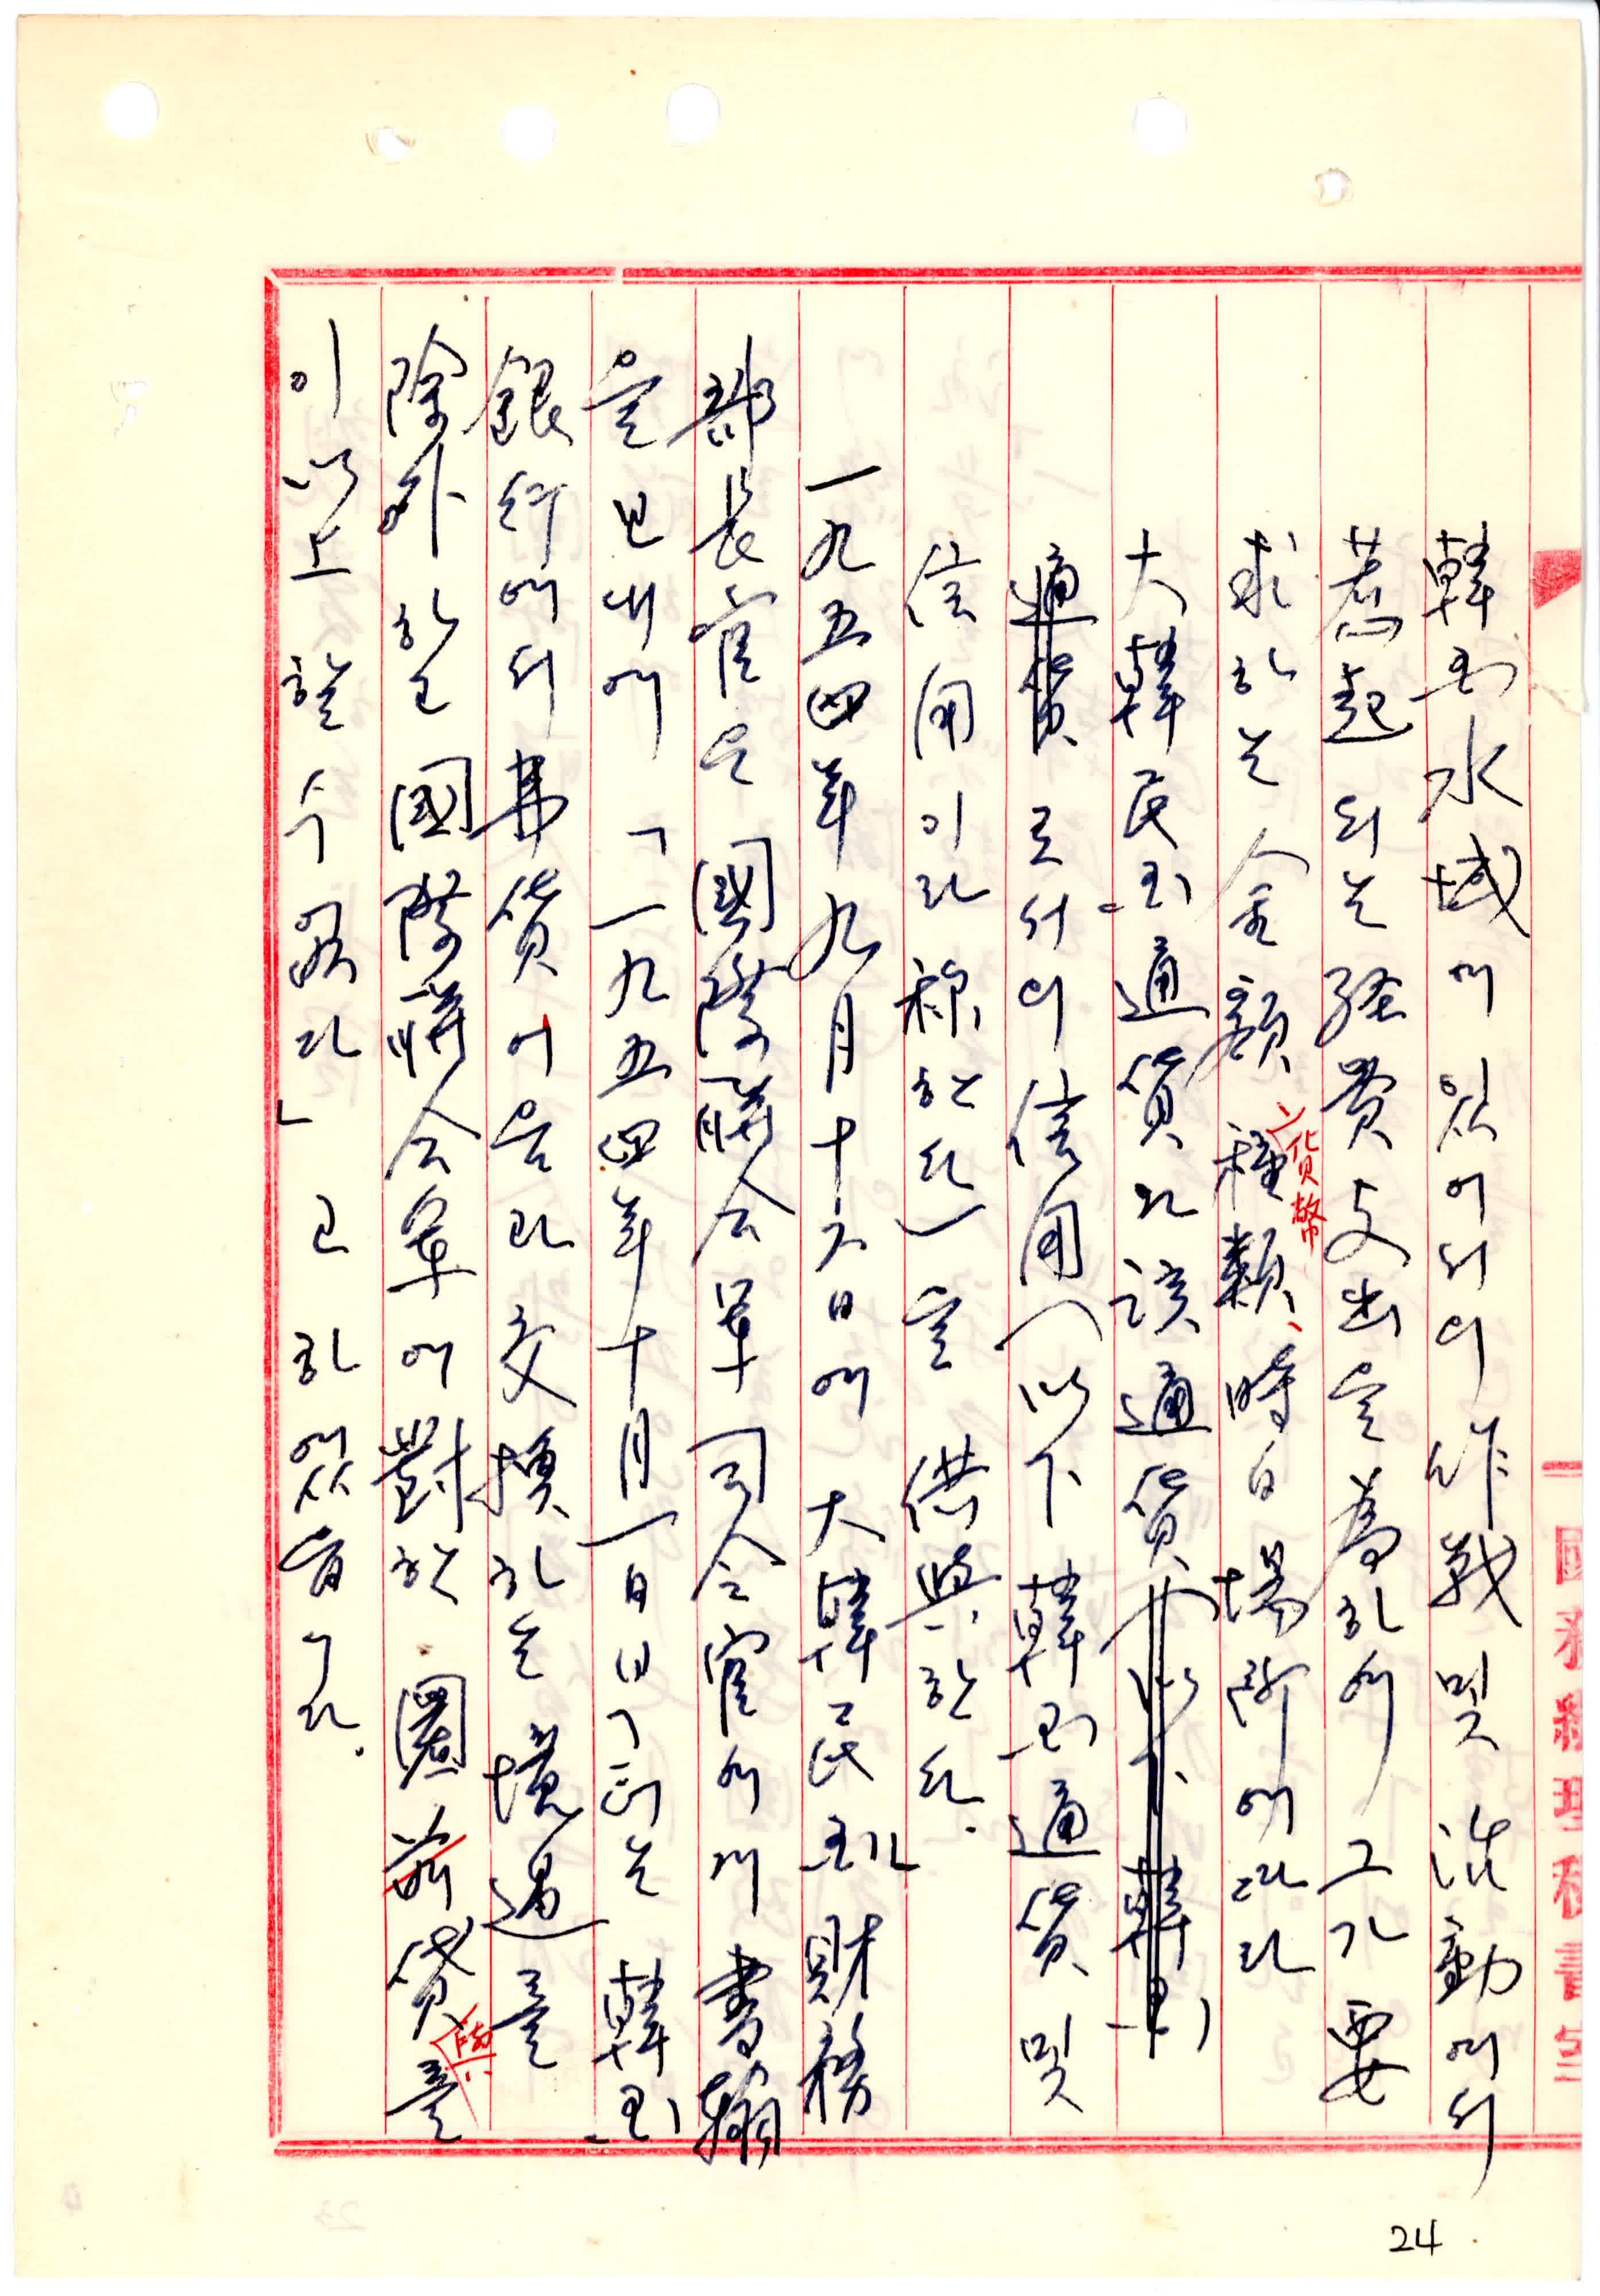 韓国水域에 있어서의 作戰 및 活動에서
惹起되는 経費支出을 爲하여 그가 要
求하는 金額 貨幣種類、時日 場所에 따라
大韓民国通貨와 該通貨(以下 韓国
通貨로서의 信用(以下 韓国通貨 및
信用이라 称한다)을 供與한다.
一九五四年九月十六日에 大韓民国 財務
部長官은 國際聯合軍司令官에게 書翰
을 보내여 「一九五四年十月一日 以後는 韓国
銀行에서 弗貨어음과 交換하는 境遇를
除外하고 國際聯合軍에 對한 圜 前貸를
이 以上 할 수 없다」고 하였읍니다.
24